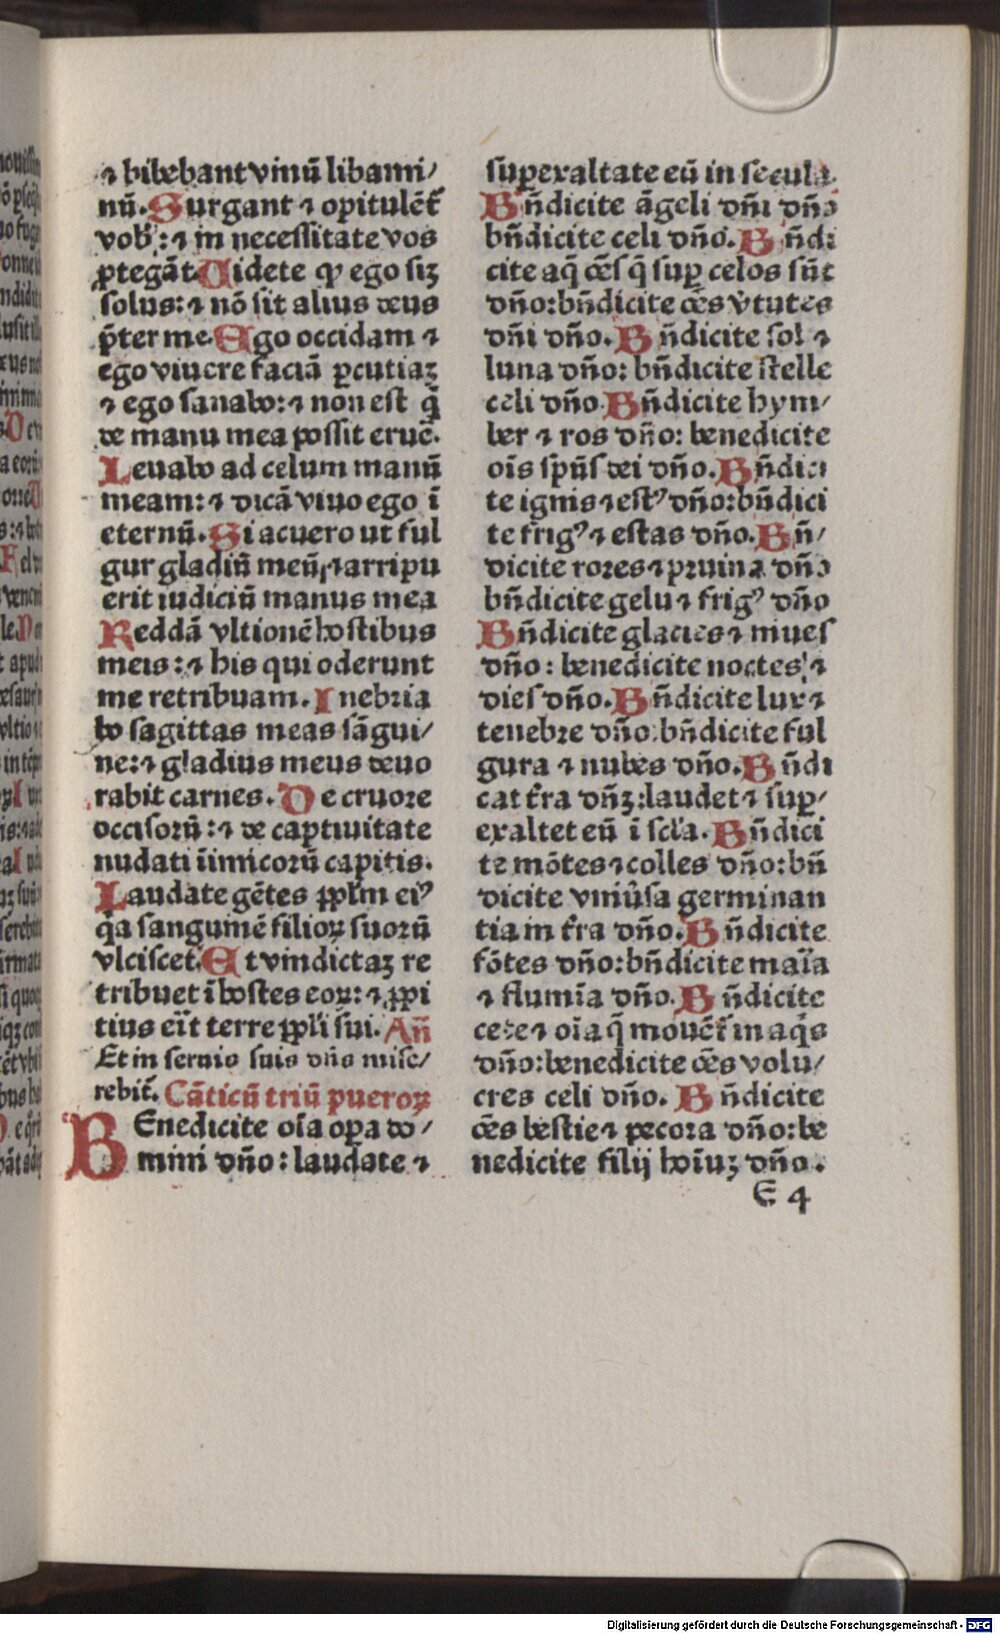 ⁊ bibebant vinū libami/
nū. Surgant ⁊ opitulēt᷑
vob᷒: ⁊ in necessitate vos
ꝓtegāt. Uidete ꝙ ego siꝫ
solus: ⁊ nō sit alius deus
p̄ter me. Ego occidam ⁊
ego viuere faciā ꝑcutiaꝫ
⁊ ego sanabo: ⁊ non est q̄
de manu mea possit eruē.
Leuabo ad celum manū
meam: ⁊ dicā viuo ego ī
eternū. Si acuero ut ful
gur gladiū meū, ⁊ arripu
erit iudiciū manus mea
Reddā vltionē hostibus
meis: ⁊ his qui oderunt
me retribuam. Inebria
bo sagittas meas sāgui/
ne: ⁊ gladius meus deuo
rabit carnes. De cruore
occisorū: ⁊ de captiuitate
nudati īimicorū capitis.
Laudate gētes ꝓplm ei᷒
q̇a sanguinē filioꝝ suorū
vlciscet. Et vindictaꝫ re
tribuet ī hostes eoꝝ: ⁊ ꝓpi
tius eīt terre ꝓpl'i sui. Añ
Et in seruis suis dñs mise/
rebit᷑. Cāticū triū pueroꝝ
BEnedicite oīa oꝑa do/
mini dño: laudate ⁊
suꝑexaltate eū in secula.
Bñdicite āgeli dñi dño
bñdicite celi dño. Bñdi
cite aq̄ oēs q̄ suꝑ celos sūt
dño: bñdicite oēs v̓tutes
dñi dño. Bñdicite sol ⁊
luna dño: bñdicite stelle
celi dño. Bñdicite hym/
ber ⁊ ros dño: benedicite
oīs spūs dei dño. Bñdici
te ignis ⁊ est᷒ dño: bñdici
te frig᷒ ⁊ estas dño. Bñ/
dicite rores ⁊ pruina dño
bñdicite gelu ⁊ frig᷒ dño
Bñdicite glacies ⁊ niues
dño: benedicite noctes ⁊
dies dño. Bñdicite lux ⁊
tenebre dño. bñdicite ful
gura ⁊ nubes dño. Bñdi
cat t᷑ra dñꝫ: laudet ⁊ suꝑ/
exaltet eū ī scl'a. Bñdici
te mōtes ⁊ colles dño: bñ
dicite vniu̓sa germinan
tia in t᷑ra dño. Bñdicite
fōtes dño: bñdicite maīa
⁊ flumīa dño. Bñdicite
cete ⁊ oīa q̄ mouēt᷑ in aq̇s
dño: benedicite oēs volu/
cres celi dño. Bñdicite
oēs bestie ⁊ pecora dño: be
nedicite filij hoīuꝫ dño.
E 4
Digitalisierung gefördert durch die Deutsche Forschungsgemeinschaft - DFG